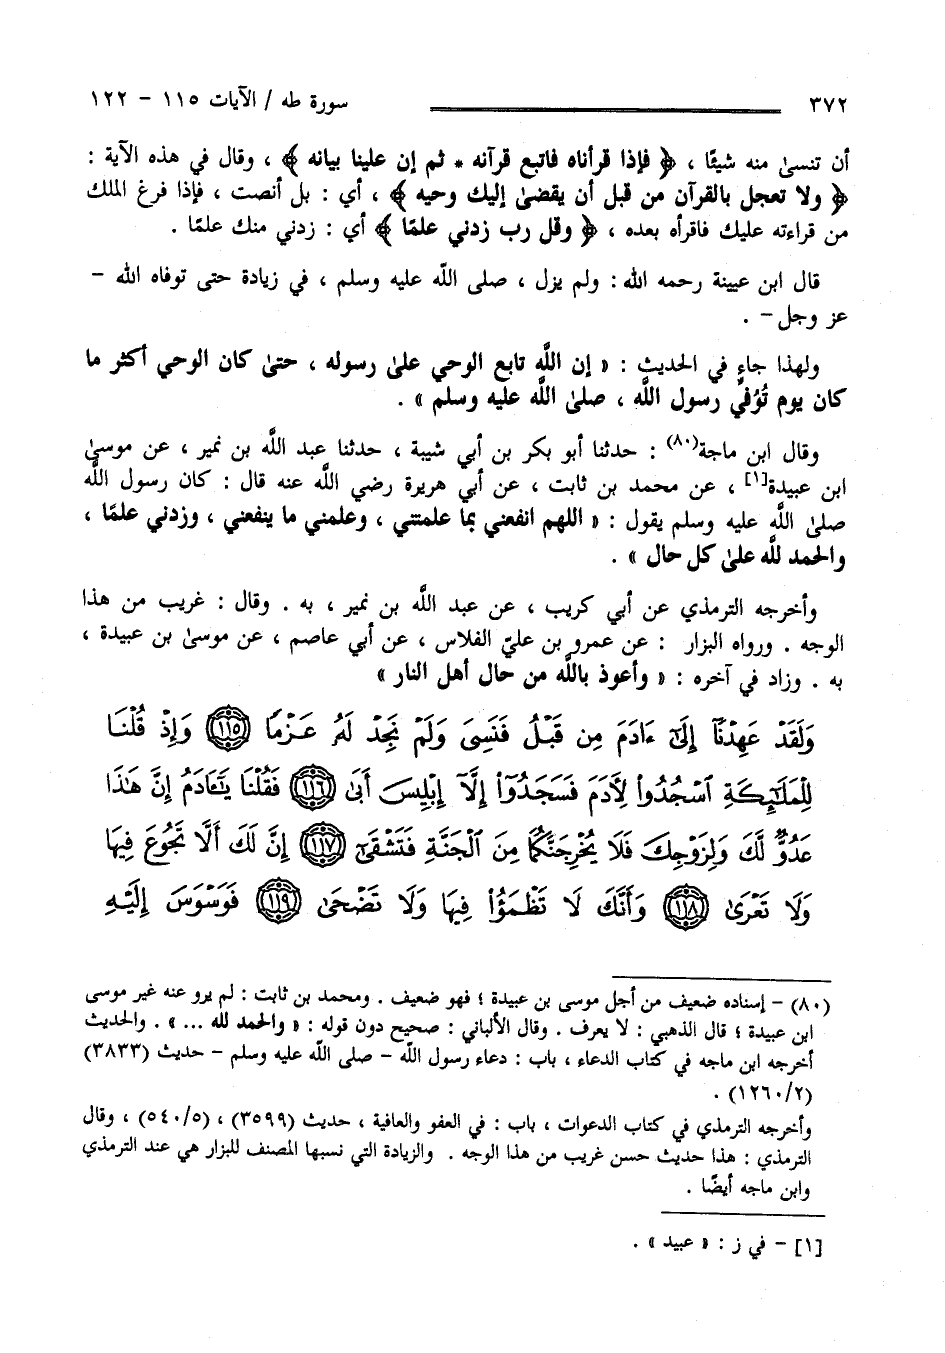 ٣٧٢ سورة طه / الآيات ١١٥ - ١٢٢
أن تنسىٰ منه شيئًا ، ﴿ فإذا قرأناه فاتبع قرآنه * ثم إن علينا بيانه ﴾ ، وقال في هذه الآية :
﴿ ولا تعجل بالقرآن من قبل أن يقضىٰ إليك وحيه ﴾ ، أي : بل أنصت ، فإذا فرغ الملك
من قراءته عليك فاقرأه بعده ، ﴿ وقل رب زدني علمًا ﴾ أي : زدني منك علمًا .
قال ابن عيينة رحمه الله : ولم يزل ، صلى اللَّه عليه وسلم ، في زيادة حتى توفاه الله -
عز وجل - .
ولهذا جاء في الحديث : « إن اللَّه تابع الوحي علىٰ رسوله ، حتىٰ كان الوحي أكثر ما
كان يوم تُوُفِّي رسول اللَّه ، صلىٰ اللَّه عليه وسلم » .
وقال ابن ماجة(٨٠) : حدثنا أبو بكر بن أبي شيبة ، حدثنا عبد اللَّه بن نمير ، عن موسىٰ
ابن عبيدة[١] ، عن محمد بن ثابت ، عن أبي هريرة رضي اللَّه عنه قال : كان رسول اللَّه
صلىٰ اللَّه عليه وسلم يقول : « اللهم انفعني بما علمتني ، وعلمني ما ينفعني ، وزدني علمًا ،
والحمد للَّه علىٰ كل حال » .
وأخرجه الترمذي عن أبي كريب ، عن عبد اللَّه بن نمير ، به . وقال : غريب من هذا
الوجه . ورواه البزار : عن عمرو بن عليّ الفلاس ، عن أبي عاصم ، عن موسىٰ بن عبيدة ،
به . وزاد في آخره : « وأعوذ باللَّه من حال أهل النار »
وَلَقَدْ عَهِدْنَآ إِلَىٰٓ ءَادَمَ مِن قَبْلُ فَنَسِىَ وَلَمْ نَجِدْ لَهُۥ عَزْمًا ﴿١١٥﴾ وَإِذْ قُلْنَا
لِلْمَلَٰٓئِكَةِ ٱسْجُدُوا۟ لِأَدَمَ فَسَجَدُوٓا۟ إِلَّآ إِبْلِيسَ أَبَىٰ ﴿١١٦﴾ فَقُلْنَا يَٰٓـَٔادَمُ إِنَّ هَٰذَا
عَدُوٌّ لَّكَ وَلِزَوْجِكَ فَلَا يُخْرِجَنَّكُمَا مِنَ ٱلْجَنَّةِ فَتَشْقَىٰٓ ﴿١١٧﴾ إِنَّ لَكَ أَلَّا تَجُوعَ فِيهَا
وَلَا تَعْرَىٰ ﴿١١٨﴾ وَأَنَّكَ لَا تَظْمَؤُا۟ فِيهَا وَلَا تَضْحَىٰ ﴿١١٩﴾ فَوَسْوَسَ إِلَيْهِ
(٨٠) - إسناده ضعيف من أجل موسى بن عبيدة ؛ فهو ضعيف . ومحمد بن ثابت : لم يرو عنه غير موسى
ابن عبيدة ؛ قال الذهبي : لا يعرف . وقال الألباني : صحيح دون قوله : « والحمد لله ... » . والحديث
أخرجه ابن ماجه في كتاب الدعاء ، باب : دعاء رسول اللَّه - صلى اللَّه عليه وسلم - حديث (٣٨٣٣)
(١٢٦٠/٢) .
وأخرجه الترمذي في كتاب الدعوات ، باب : في العفو والعافية ، حديث (٣٥٩٩) ، (٥٤٠/٥) ، وقال
الترمذي : هذا حديث حسن غريب من هذا الوجه . والزيادة التي نسبها المصنف للبزار هي عند الترمذي
وابن ماجه أيضًا .
[١] - في ز : « عبيد » .